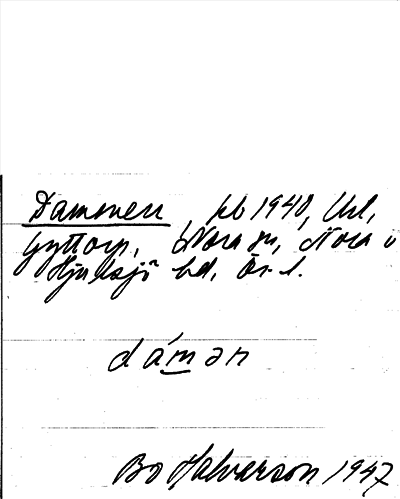 Dammen, kb 1940, Url,
Gyttorp, Nora sn, Nora o
Hjulsjö bd, Ör. l.
dámən
Bo Halvarson 1947